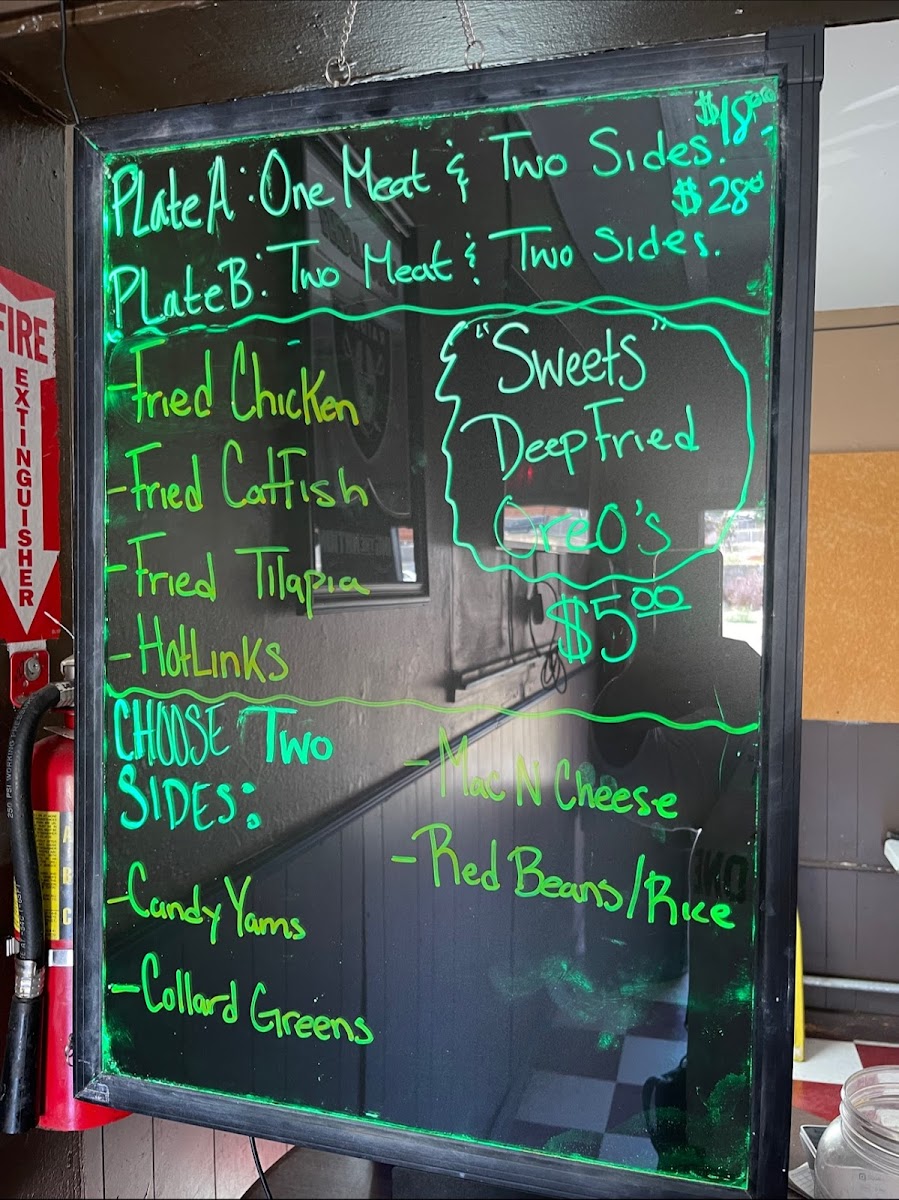 $18.00
PLate A: One Meat & Two Sides.
$28.00
PLate B: Two Meat & Two Sides.
-Fried Chicken
-Fried Catfish
-Fried Tilapia
-HotLinks
"Sweets"
Deep Fried
Oreo's
$5.00
CHOOSE Two
SIDES:
-Candy Yams
-Collard Greens
-Mac N Cheese
-Red Beans/Rice
FIRE
EXTINGUISHER
A
B
C